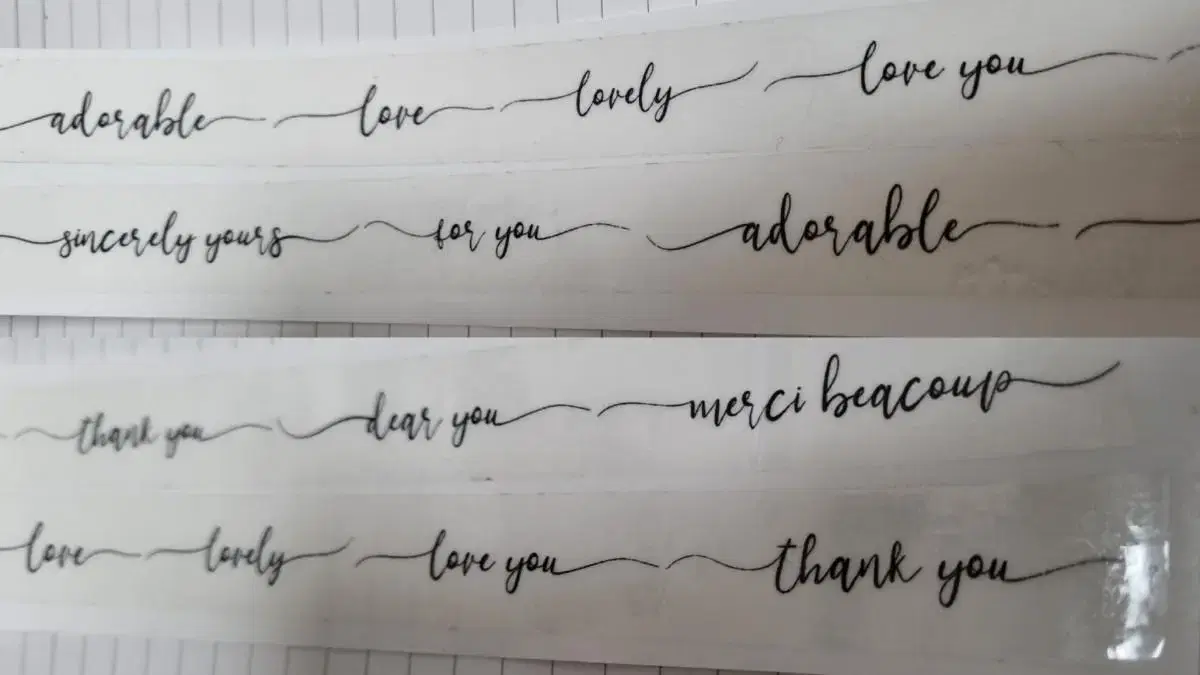 adorable love lovely love you
sincerely yours for you adorable
thank you dear you merci beacoup
love lovely love you thank you